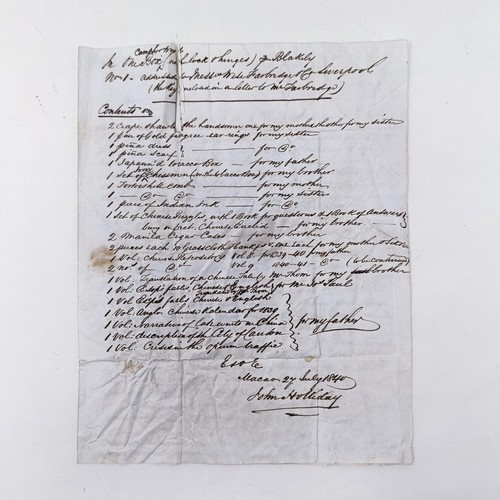 Camphor wood
In One Box (with lock & hinges) Blakely
No 1 - addressed to Messrs Wild Farbridge & Co Liverpool
(the Key enclosed in a letter to Mr Farbridge)
Contents
2 Crape Shawls the handsomer one for my mother & other for my sister
1 pair of Gold filigree ear rings for my sister
1 piña dress — for Do
1 piña scarf
1 Japann'd Tobacco Box — for my father
1 Set of Ivory Chessmen (in the tobacco Box) for my brother
1 Tortoiseshell comb — for my mother
1 — Do — Do — for my sister
1 piece of Indian Ink — for Do
1 Set of Chinese Puzzles, with 1 Book for questions & 1 Book of Answers
being in fact Chinese Euclid — for my brother
2 Manila Cigar Cases — for my brother
2 pieces each 10 Grasscloth Handkfs - one each for my mother & sister
1 Vol: Chinese Repository Vol 8 for 1839-40 for my father
2 nos of Do Vol 9 1840-41 - Do (to be continued)
1 Vol: Translation of a Chinese Tale by Mr Thom for my brother
1 Vol: Esop's fables Chinese & English for Mr Saul
1 Vol Esop's fables Chinese & English
1 Vol Anglo Chinese Kalendar for 1839
1 Vol: Narrative of late events in China
for my father
1 Vol: description of the City of Canton
1 Vol: Crisis in the opium traffic
E & O E
Macao 27 July 1840
John Holliday